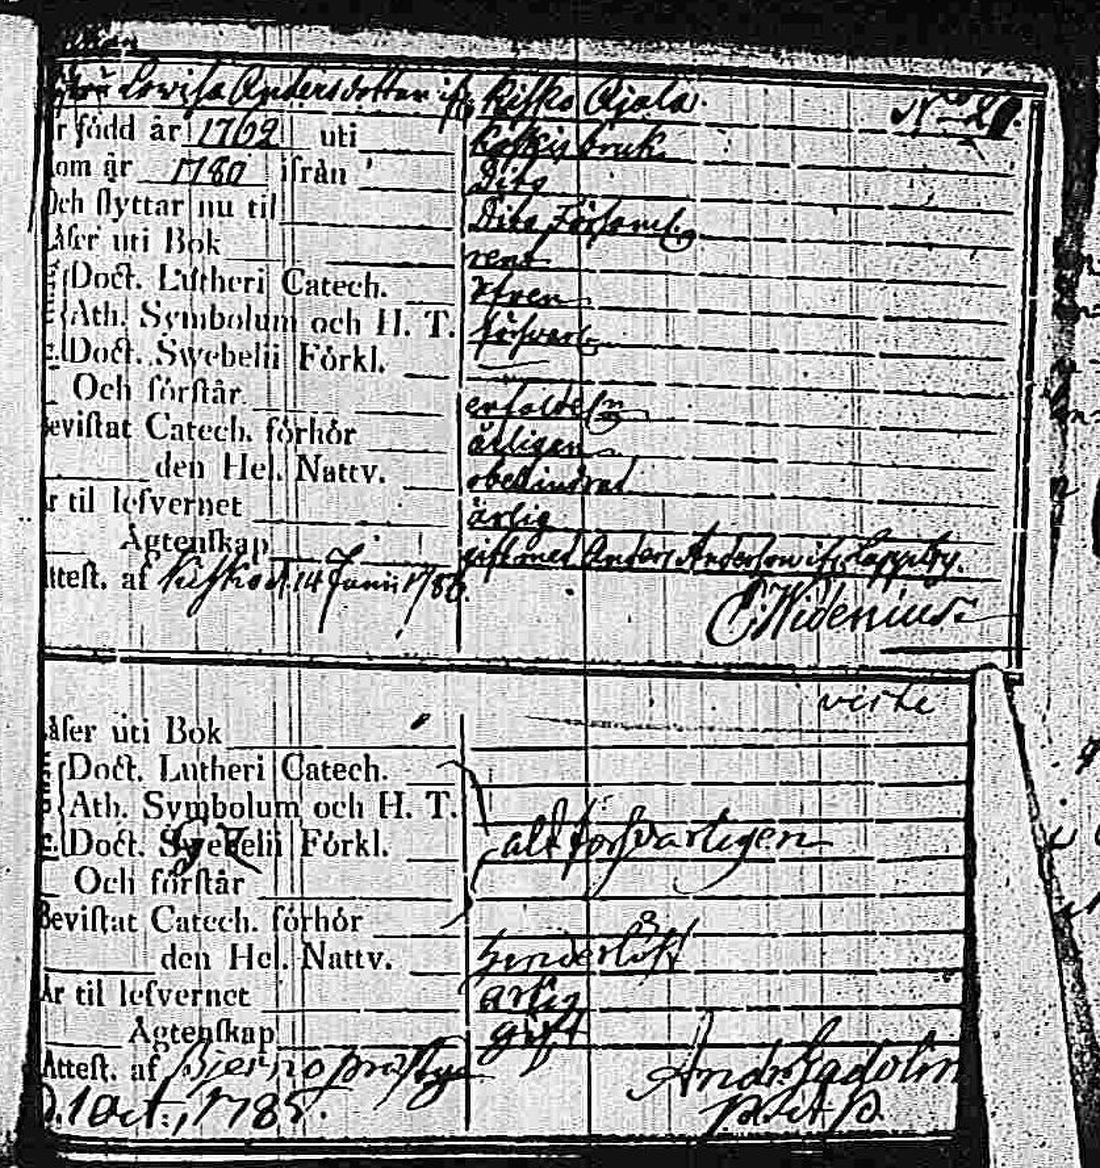 Lowisa Andersdotter ifr. Kisko Ajala. No 21.
r född år 1762 uti Koskis bruk.
om år 1780 ifrån Dito
Och flyttar nu til Dito Församl.
äser uti Bok rent
Doct. Lutheri Catech.
Ath. Symbolum och H. T. försvarl.
Doct. Swebelii Förkl.
Och förstår
evistat Catech. förhör årligen
den Hel. Nattv. obehindrad
r til lefvernet ärlig
Ägtenskap gift med Anders Anderson ifr.
ttest. af Kisko d. 14 Junii 1786.
E. Widenius.
äser uti Bok
Doct. Lutheri Catech.
Ath. Symbolum och H. T.
Doct. Swebelii Förkl. alt försvarligen
Och förstår
Bevistat Catech. förhör
den Hel. Nattv. hinderlöst
Är til lefvernet ärlig
Ägtenskap gift
Attest. af Bierno
D. 1 Oct:, 1785. Andr. Gadolin